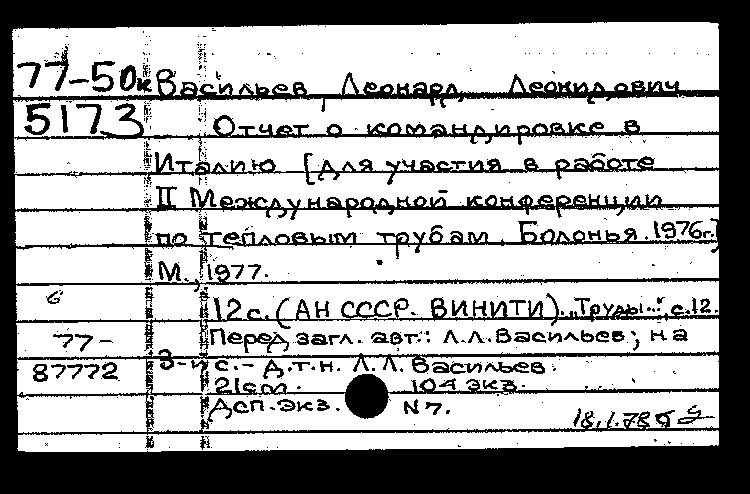 77-50к Васильев, Леонард Леонидович
5173 Отчет о командировке в
Италию [для участия в работе
II Международной конференции
по тепловым трубам. Болонья. 1976г.]
М., 1977.
6 12 с. (АН СССР. ВИНИТИ). „Труды...", с. 12.
77- Перед загл. авт.: Л.Л. Васильев; на
87772 3-й с. - д.т.н. Л.Л. Васильев.
21 см. 104 экз.
Дсп. экз. N 7.
18.1.78